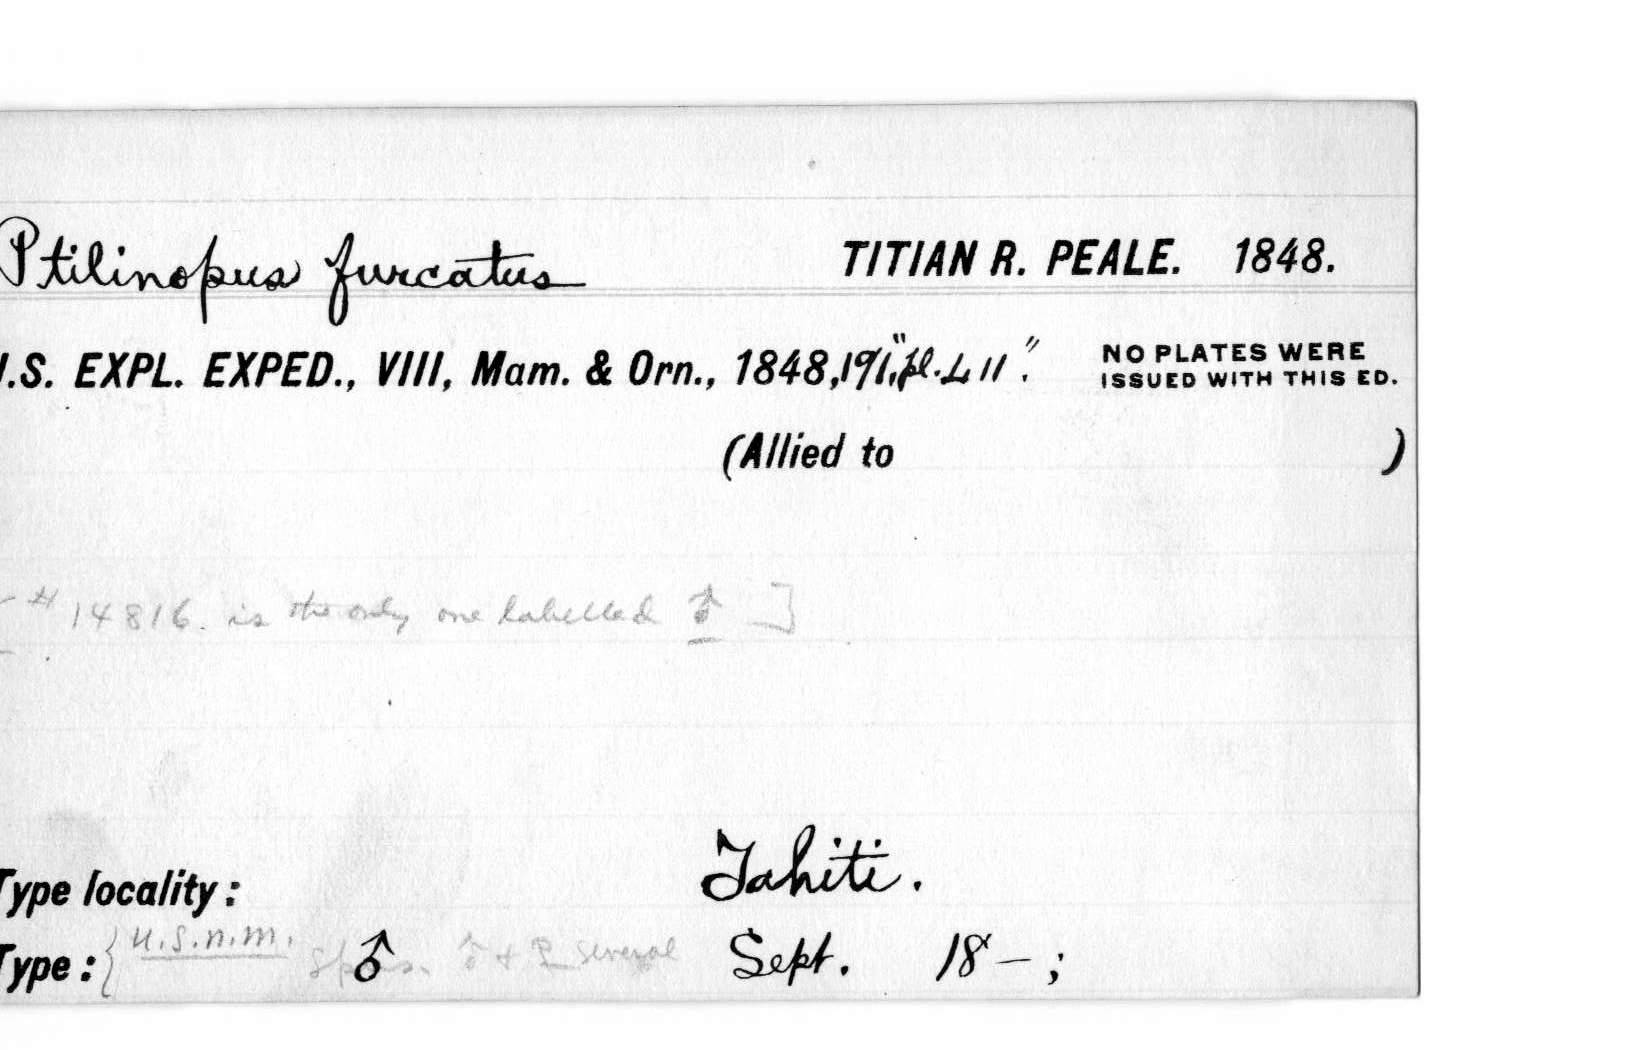 Ptilinopus furcatus TITIAN R. PEALE. 1848.
.S. EXPL. EXPED., VIII, Mam. & Orn., 1848, 191, "pl. L 11". NO PLATES WERE
ISSUED WITH THIS ED.
(Allied to )
# 14816. is the only one labelled ♂ ]
Type locality: Tahiti.
Type: { U.S.N.M. Spcs. ♂ ♂ + ♀ several Sept. 18–;